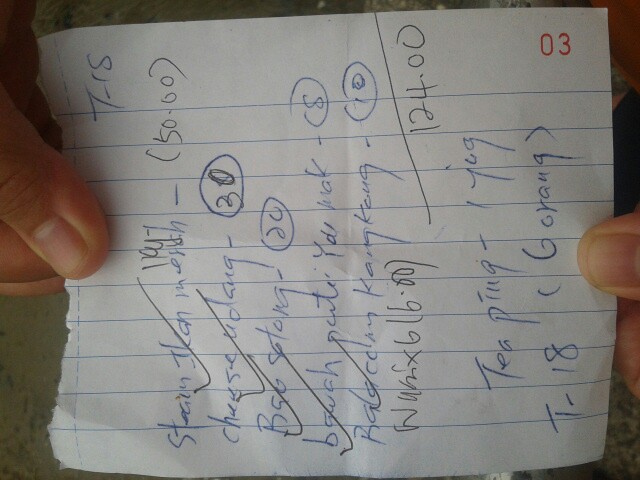 T-18
Steam Ikan merah - (50.00)
cheese udang - 30
Bao Sotong - 20
bayah putih Yau mak - 8
Balacan kangkang - 10
Nasix6 (6.00)
124.00
Tea ping - 1 jug
T-18 (6 orang)
03